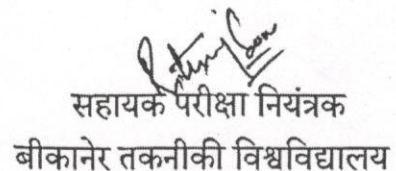 सहायक परीक्षा नियंत्रक
बीकानेर तकनीकी विश्वविद्यालय